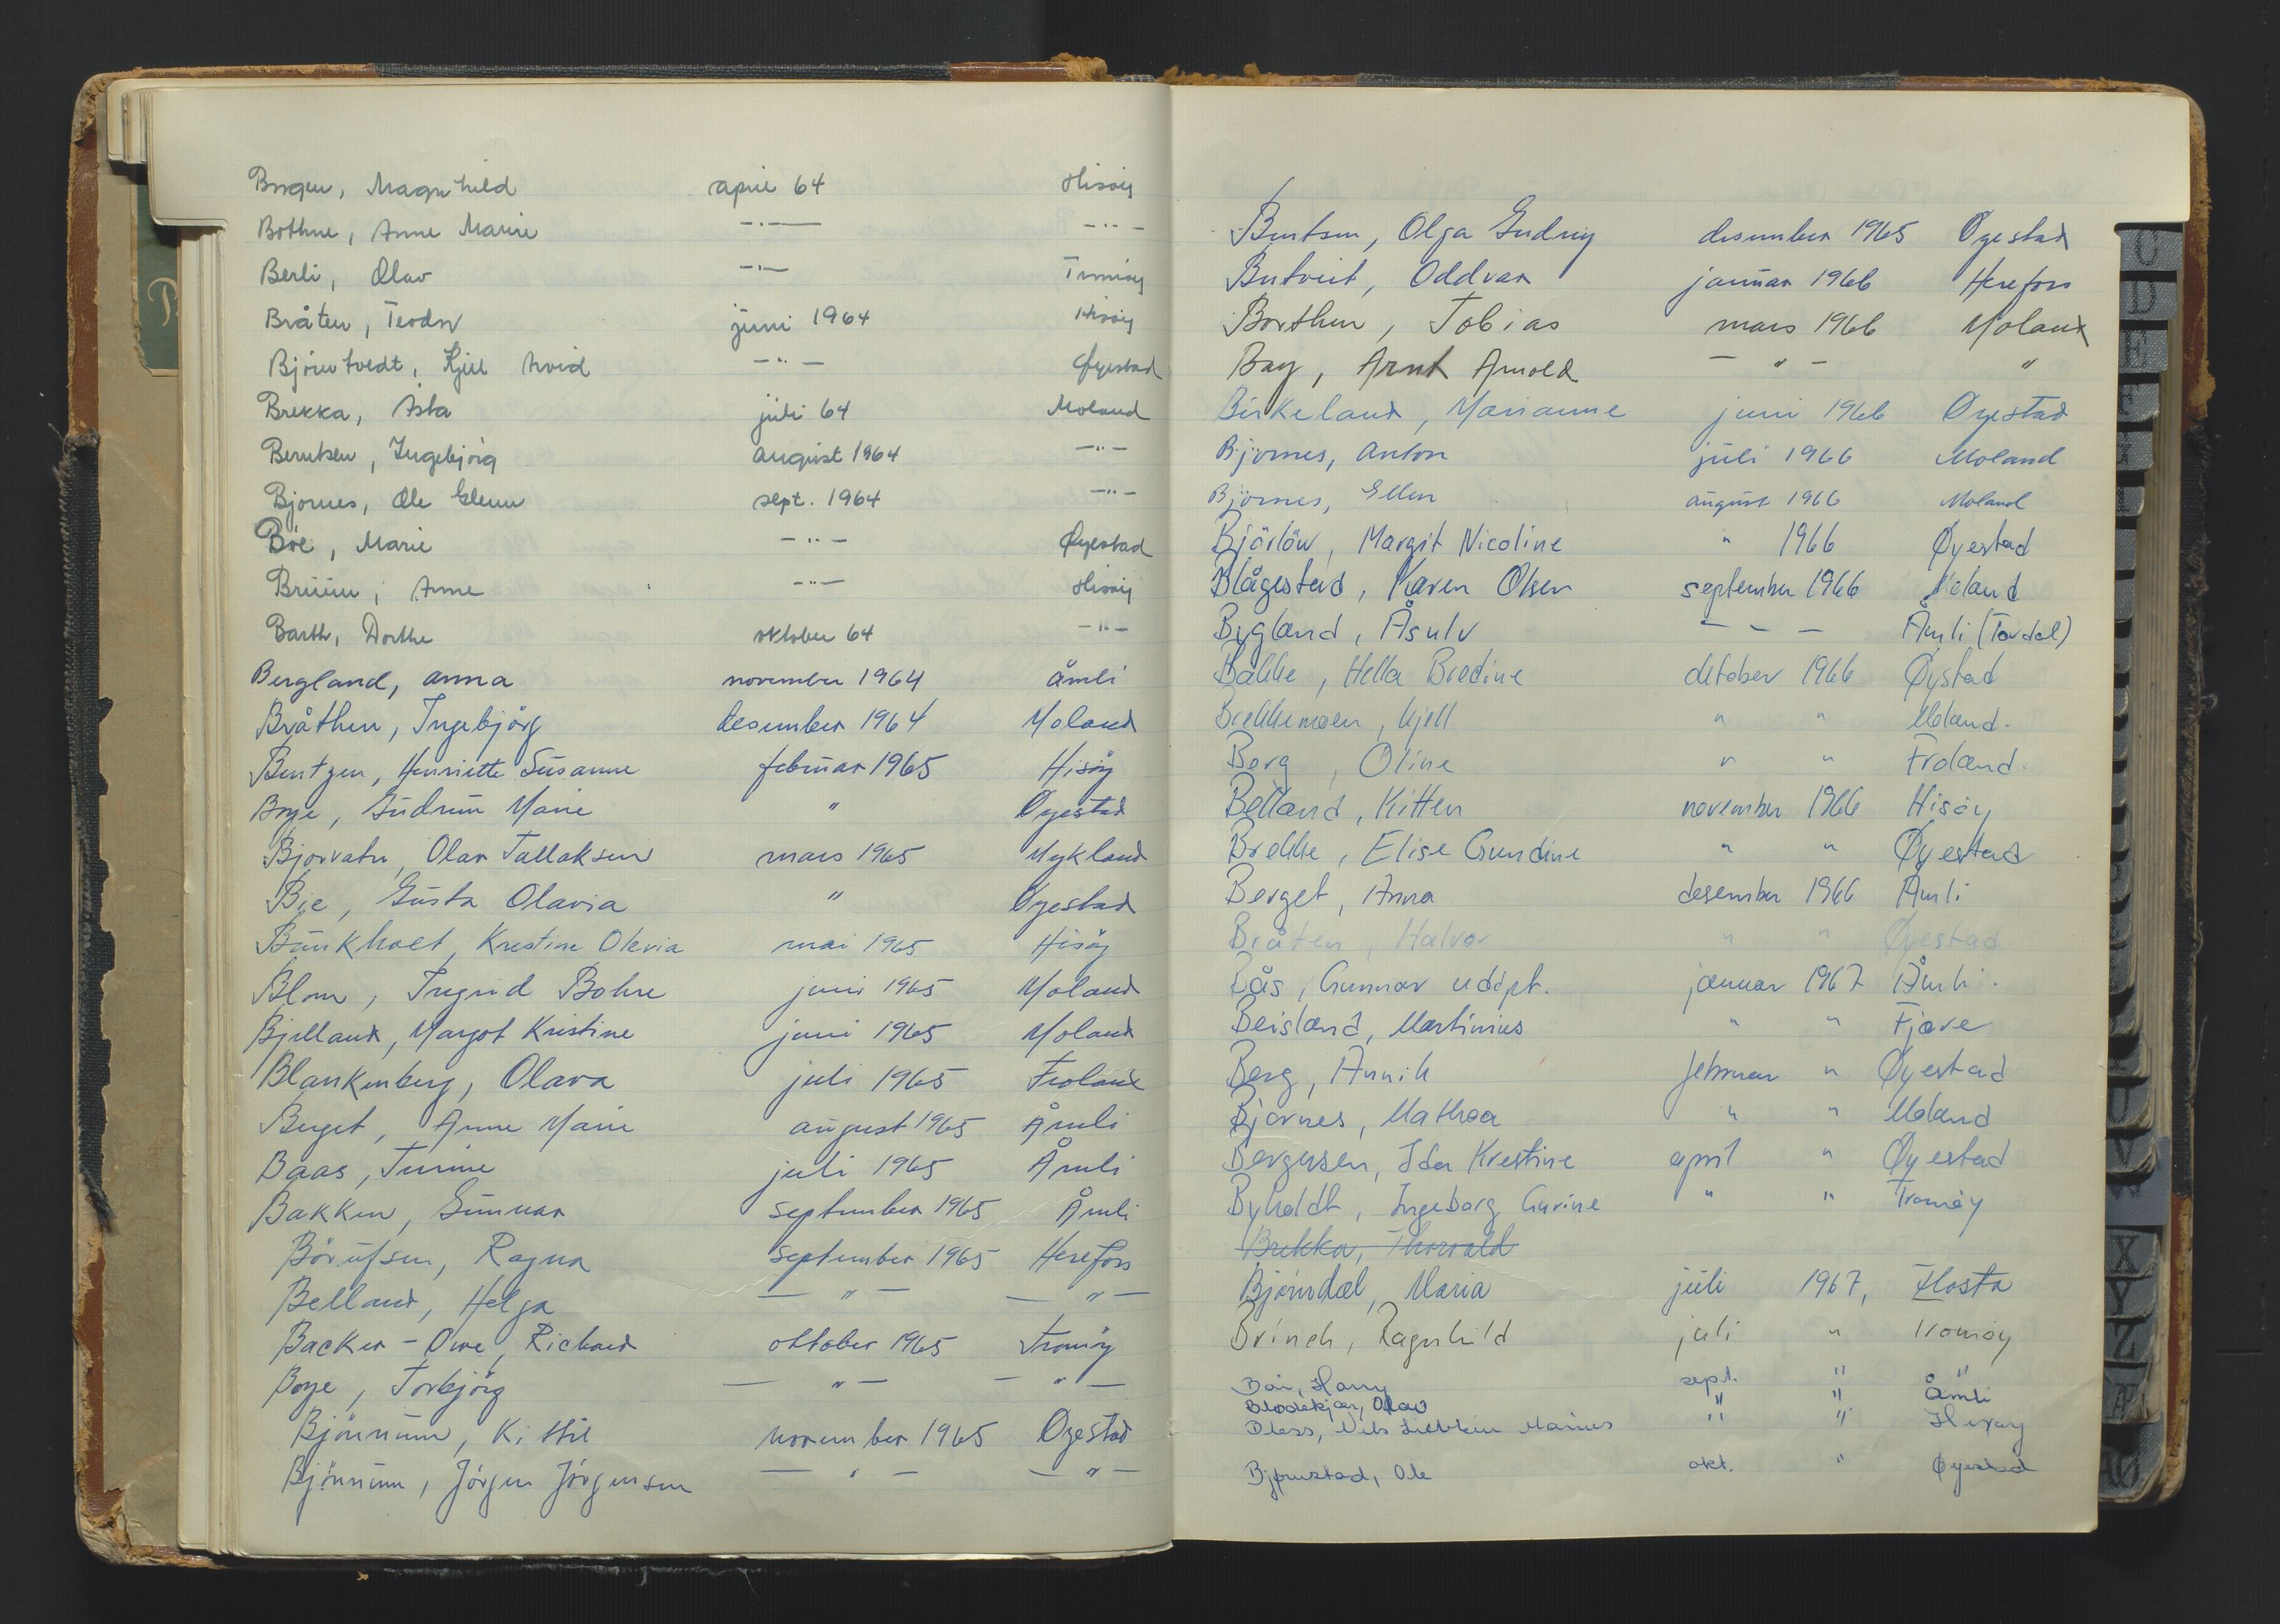 Borgen, Magnhild april 64 Hisøy
Bothne, Anne Marie —·— —··—
Berli, Olav —·— Tromøy
Bråten, Teodor juni 1964 Hisøy
Bjørntvedt, Kjell Arvid —"— Øyestad
Brekka, Asta juli 64 Moland
Berntsen, Ingebjørg august 1964 —"—
Bjornes, Ole Glenn sept. 1964 —"—
Bøe, Marie —"— Øyestad
Brüün, Anne —"— Hisøy
Barth, Dorthe oktober 64 —"—
Bergland, anna november 1964 åmli
Bråthen, Ingebjörg desember 1964 Moland
Bentzen, Henriette Susanne februar 1965 Hisöy
Boye, Gudrun Marie " Öyestad
Bjorvatn, Olav Tallaksen mars 1965 Mykland
Bie, Gusta Olavia " Öyestad
Bunkholt, Krestine Olevia mai 1965 Hisöy
Blom, Ingrid Bohne juni 1965 Moland
Bjelland, Margot Kristine juni 1965 Moland
Blankenberg, Olava juli 1965 Froland
Berget, Anne Marie august 1965 Åmli
Baas, Turine juli 1965 Åmli
Bakken, Gunnar september 1965 Åmli
Börufsen, Ragna september 1965 Herefoss
Belland, Helga — " — — " —
Backer-Owe, Richard oktober 1965 Tromöy
Boye, Torbjörg — " — — " —
Bjönnum, Kittil november 1965 Öyestad
Bjönnum, Jörgen Jörgensen — " — — " —
Berntsen, Olga Gudrny desember 1965 Öyestad
Butveit, Oddvar januar 1966 Herefoss
Borthen, Tobias mars 1966 Moland
Bay, Arnt Arnold — " — "
Birkeland, Marianne juni 1966 Öyestad
Bjornes, Anton juli 1966 Moland
Bjornes, Ellen august 1966 Moland
Björlöw, Margit Nicoline " 1966 Øyestad
Blågestad, Karen Olsen september 1966 Moland
Bygland, Åsulv — — — Åmli (Tovdal)
Bakke, Hella Bredine oktober 1966 Øystad
Brekkemoen, Kjell " " Moland.
Berg, Oline " " Froland.
Belland, Kitten november 1966 Hisöy
Brekke, Elise Gundine " " Øyestad
Berget, Anna desember 1966 Åmli
Bråten, Halvor " " Øyestad
Bås, Gunnar uddpt. januar 1967 Åmli.
Beisland, Martinius " " Fjære
Berg, Annik februar " Øyestad
Bjornes, Mathea " " Moland
Bergersen, Ida Krestine april " Øyestad
Byholdt, Ingeborg Gurine " " Tromöy
Brekka, Thorvald
Bjørndal, Maria juli 1967, Flosta
Brinch, Ragnhild juli " Tromøy
Boi, Harry sept. " "
Blodekjær, Olav " " Åmli
Bless, Nils Marius " " Hisøy
Bjørnstad, Ole okt. " Øyestad
C
D
E
F
U
V
X
Y
Z
Æ
Ø